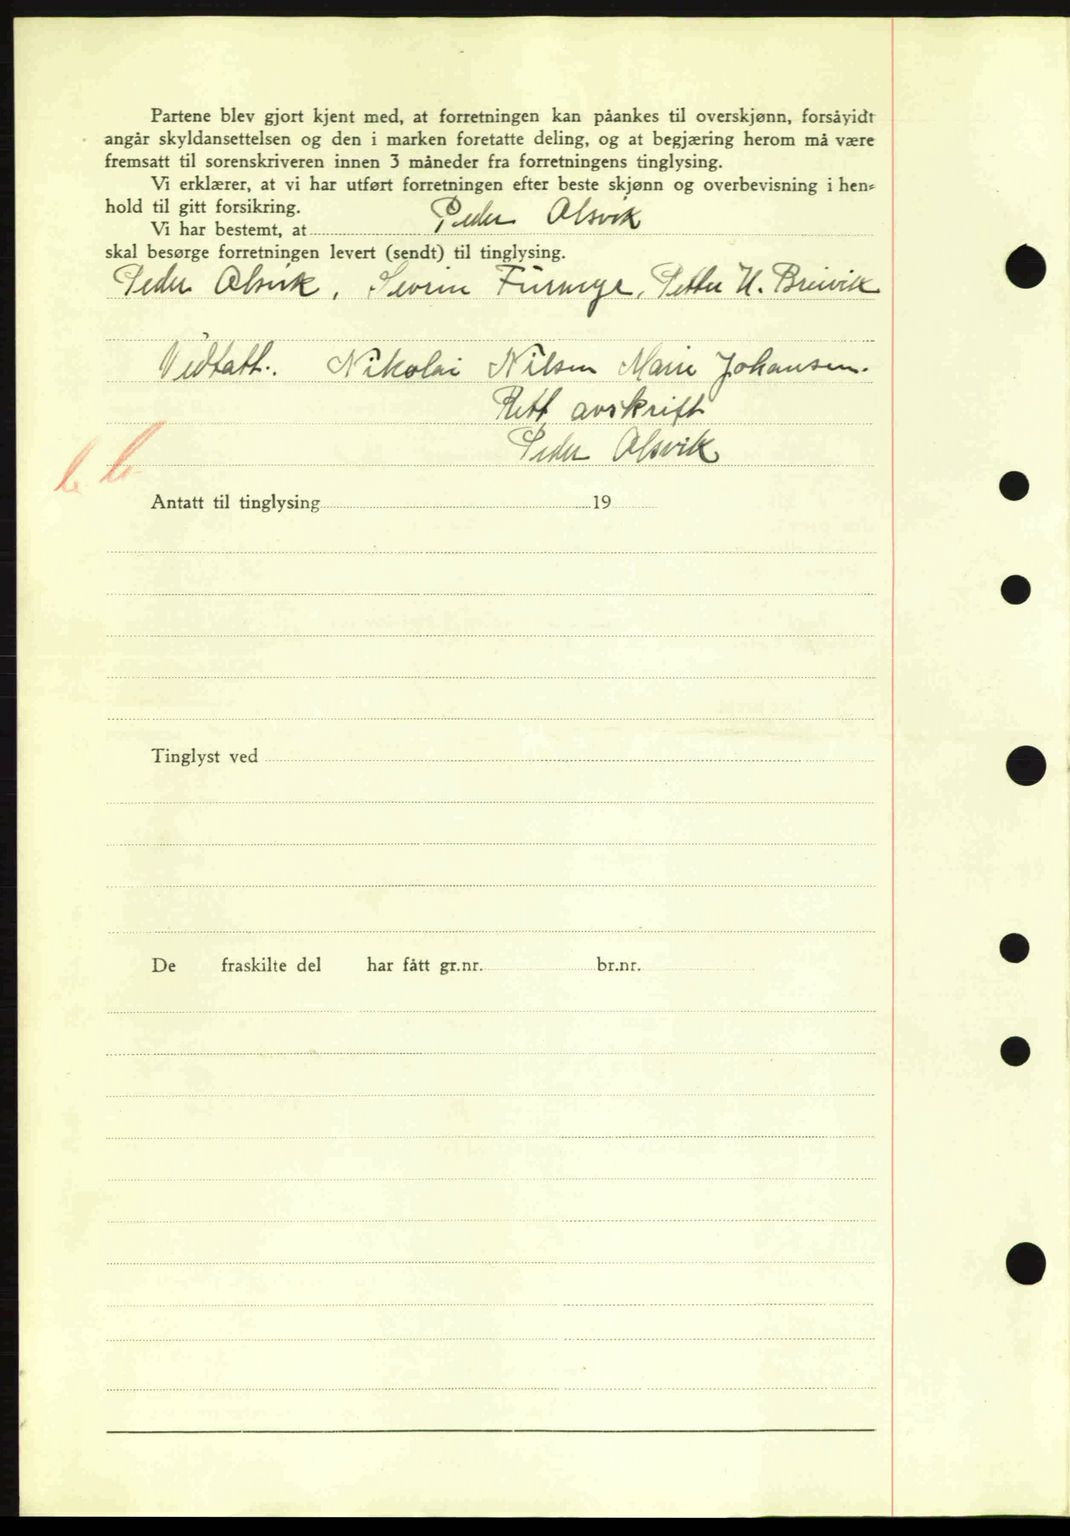 Partene blev gjort kjent med, at forretningen kan påankes til overskjønn, forsåvidt
angår skyldansettelsen og den i marken foretatte deling, og at begjæring herom må være
fremsatt til sorenskriveren innen 3 måneder fra forretningens tinglysing.
Vi erklærer, at vi har utført forretningen efter beste skjønn og overbevisning i hen-
hold til gitt forsikring.
Vi har bestemt, at Peder Alsvik
skal besørge forretningen levert (sendt) til tinglysing.
Peder Alsvik, Sevrin Furmyr, Petter H. Breivik
Vedtatt. Nikolai Nilsen Marie Johansen.
Rett avskrift
Peder Alsvik
Antatt til tinglysing 19
Tinglyst ved
De fraskilte del har fått gr.nr. br.nr.